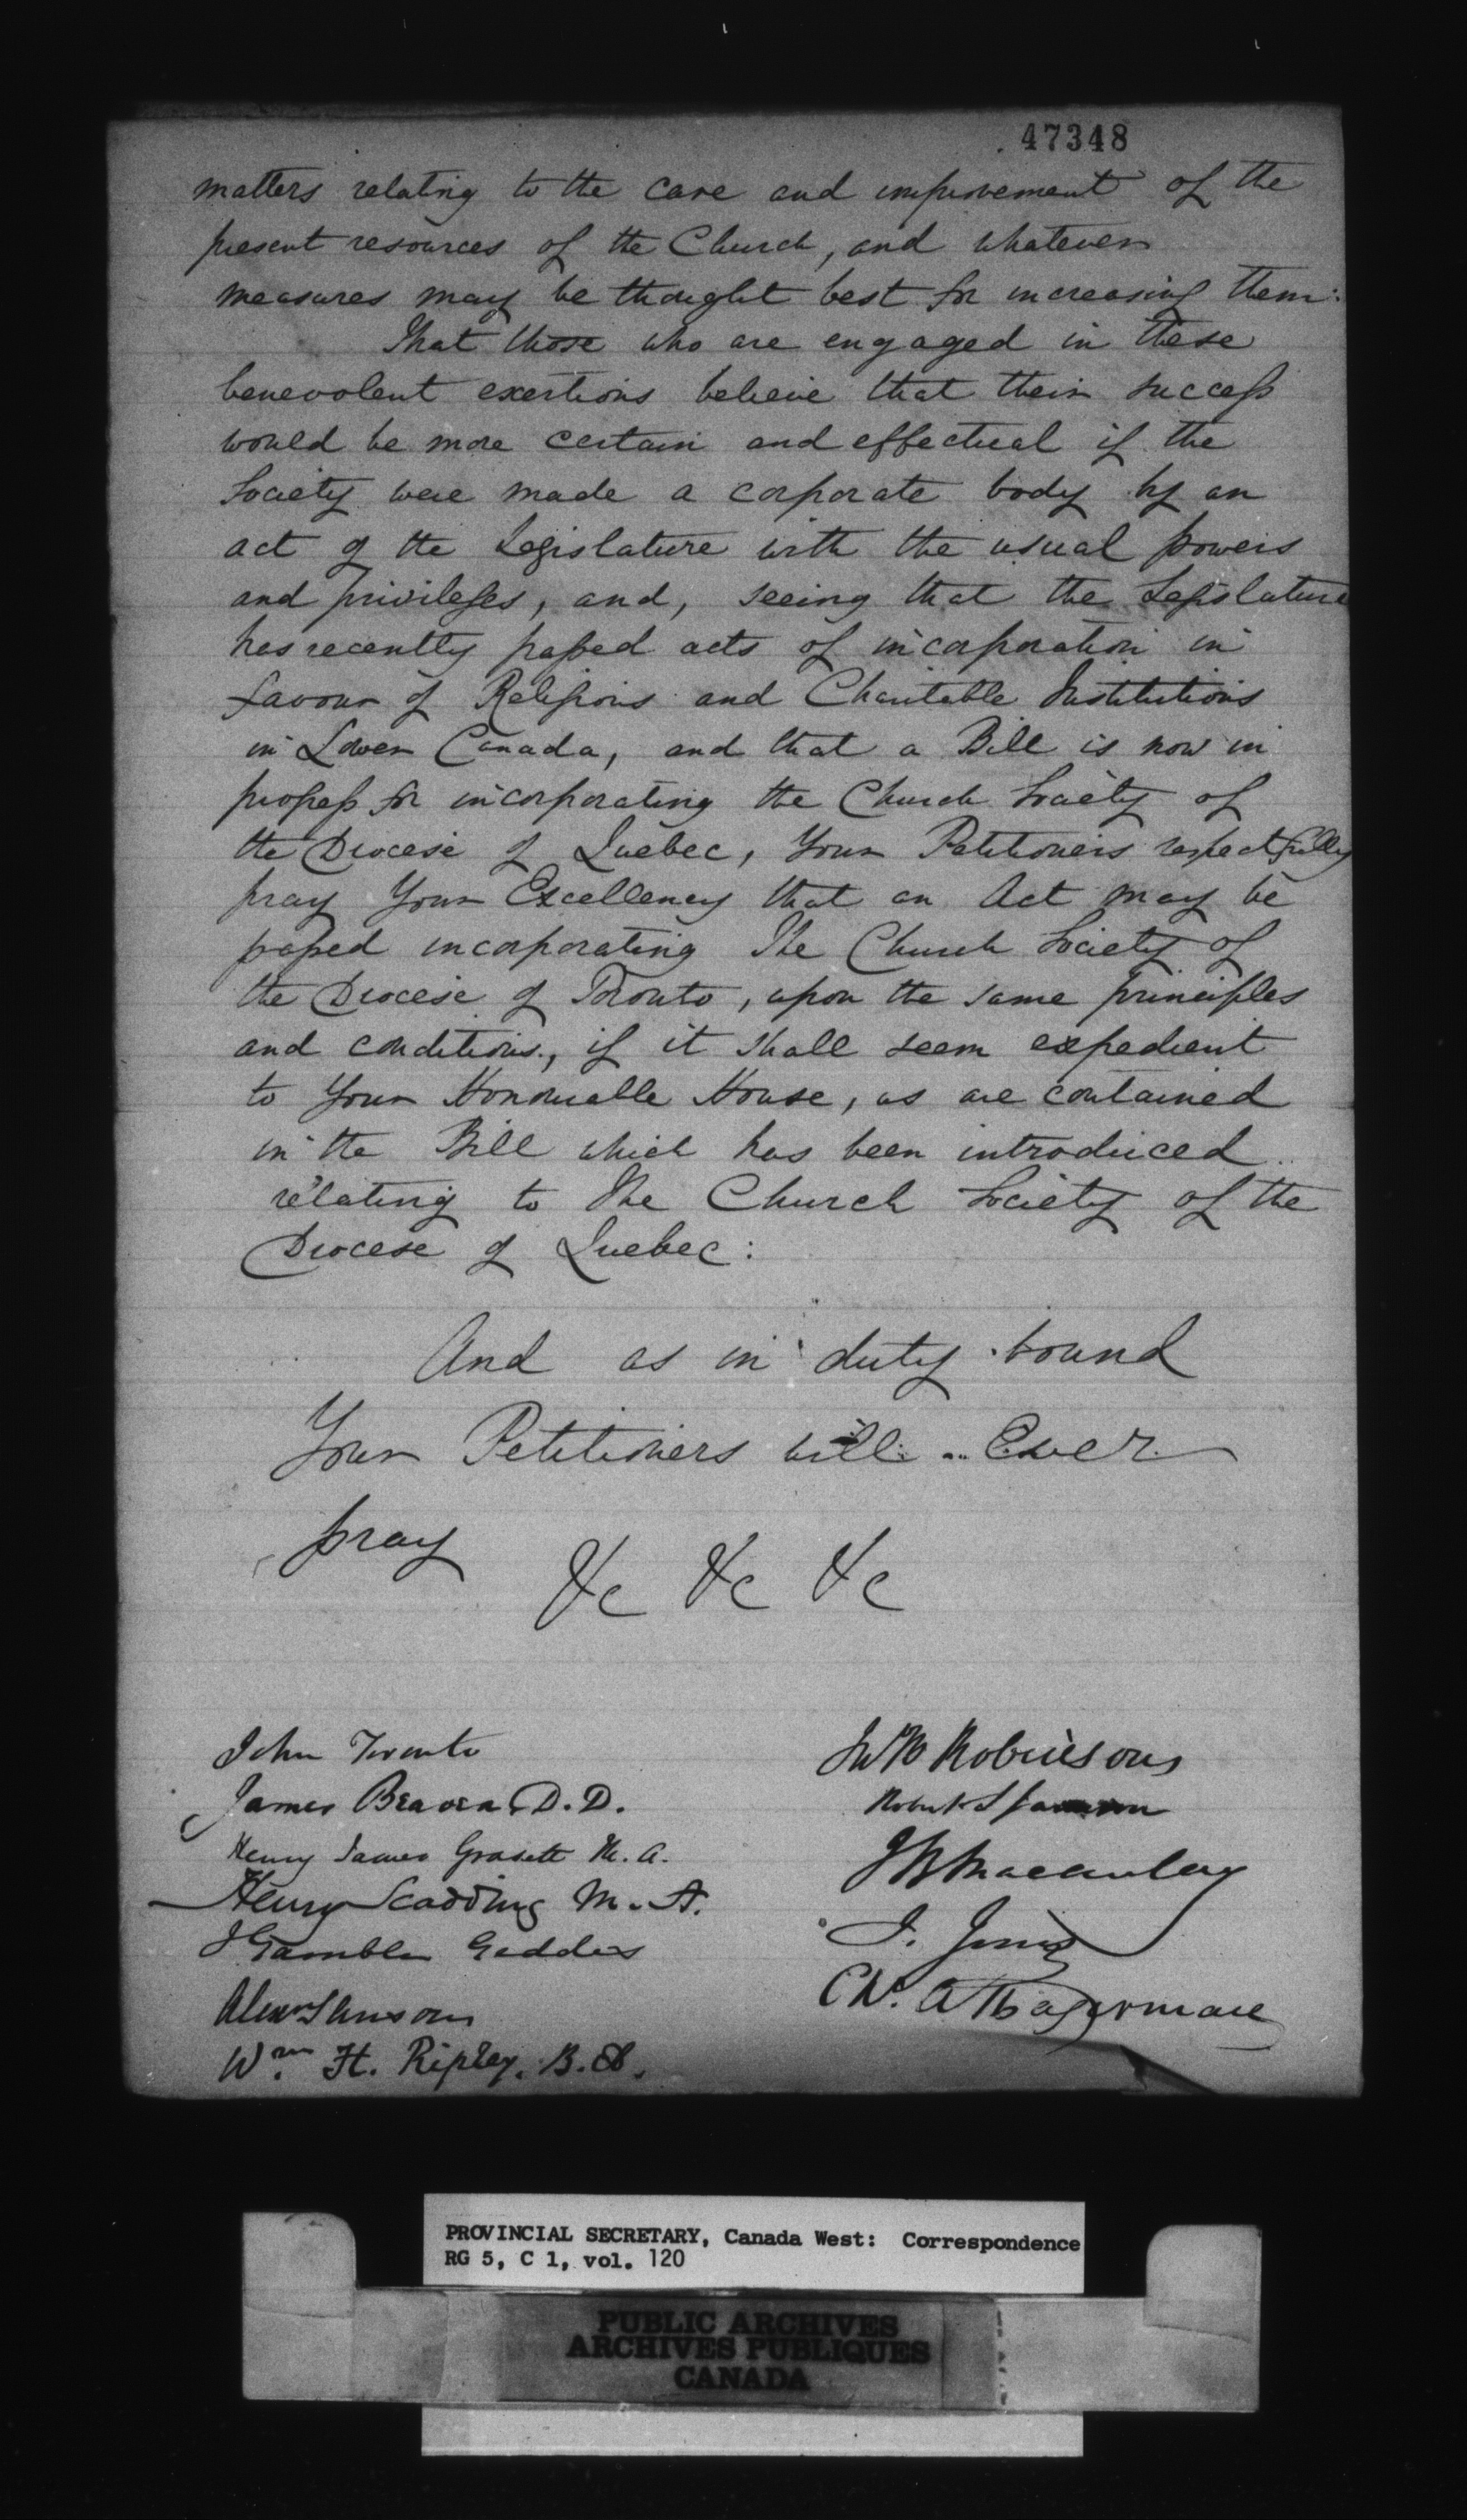 47348
matters relating to the care and improvement of the
present resources of the Church, and whatever
measures may be thought best for increasing them:
That those who are engaged in these
benevolent exertions believe that their success
would be more certain and effectual if the
Society were made a corporate body by an
act of the Legislature with the usual powers
and privileges, and, seeing that the Legislature
has recently passed acts of incorporation in
favour of Religious and Charitable Institutions
in Lower Canada, and that a Bill is now in
progress for incorporating the Church Society of
the Diocese of Quebec, Your Petitioners respectfully
pray Your Excellency that an Act may be
passed incorporating The Church Society of
the Diocese of Toronto, upon the same principles
and conditions, if it shall seem expedient
to Your Honourable House, as are contained
in the Bill which has been introduced
relating to The Church Society of the
Diocese of Quebec:
And as in duty bound
Your Petitioners will Ever
pray
&c &c &c
John Toronto
James Beaven D.D.
Henry James Grasett M.A.
Henry Scadding M.A.
J Gamble Geddes
Alexr Sanson
Wm. H. Ripley, B.A.
Robinson
Robert S Jameson
J B Macaulay
J. Jones
C. A. Hagerman
PROVINCIAL SECRETARY, Canada West: Correspondence
RG 5, C 1, vol. 120
PUBLIC ARCHIVES
ARCHIVES PUBLIQUES
CANADA